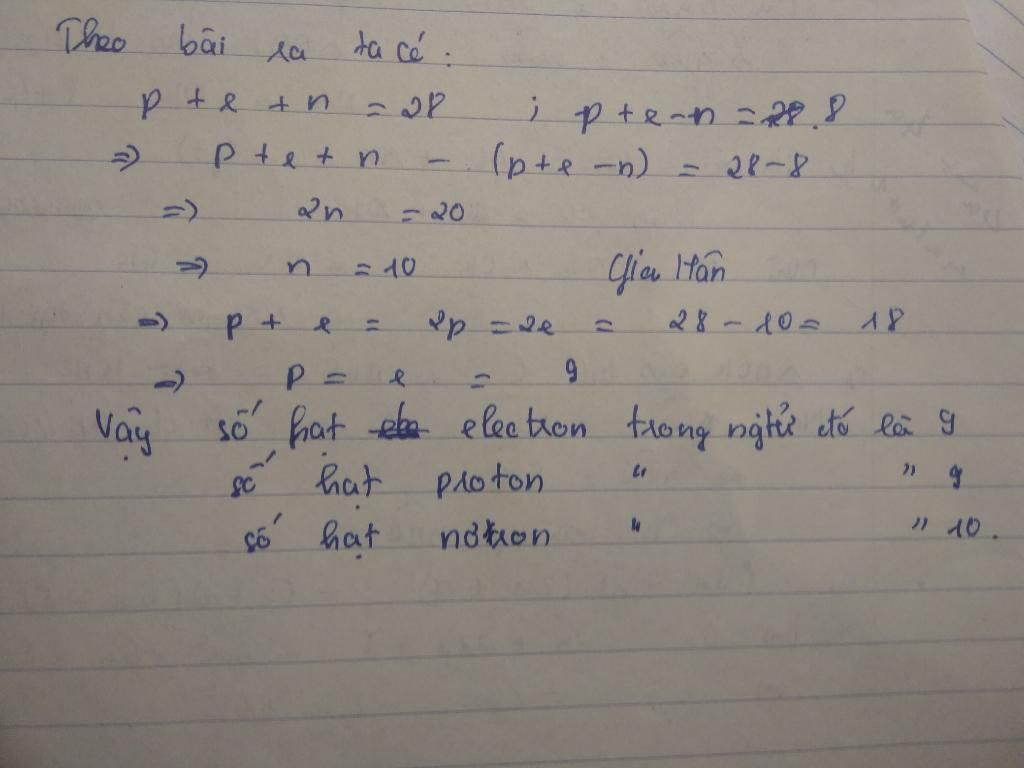 Theo bài ra ta có :
p + e + n = 28 ; p + e - n = 8
=> p + e + n - (p + e - n) = 28 - 8
=> 2n = 20
=> n = 10 Gia Hân
=> p + e = 2p = 2e = 28 - 10 = 18
=> p = e = 9
Vậy số hạt electron trong ngtử đó là 9
số hạt proton " " 9
số hạt nơtron " " 10.